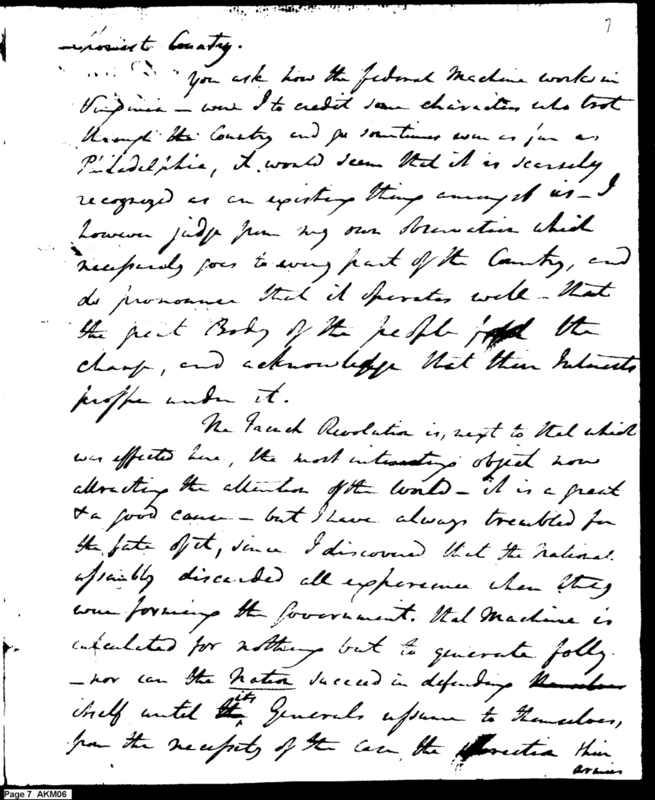 7
Country.
You ask how the federal Machine works in
Virginia – were I to credit some characters who trot
through the Country and go sometimes even as far as
Philadelphia, it would seem that it is scarsely
recognized as an existing thing amongst us – I
however judge from my own observation which
necessarily goes to every part of the Country, and
do pronounce that it operates well – that
the great Body of the people feel the
change, and acknowledge that their Interests
prosper under it.
The French Revolution is, next to that which
was effected here, the most interesting object now
attracting the attention of the World – it is a great
& a good cause – but I have always trembled for
the fate of it, since I discovered that the National
assembly discarded all experience when they
were forming the Government. that Machine is
calculated for nothing but to generate folly
– nor can the Nation succeed in defending themselves
itself until its Generals assume to themselves,
from the necessity of the case, the direction their
armies
Page 7 AKM06